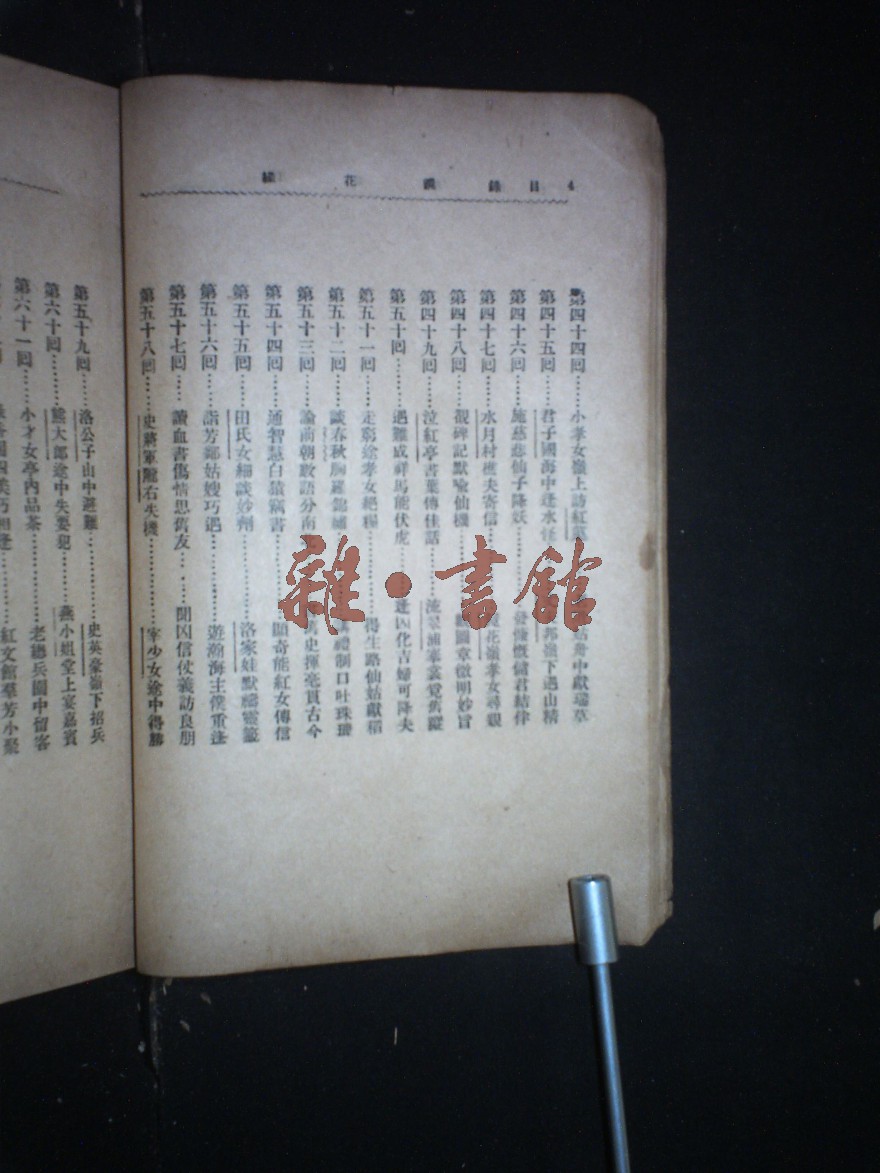 4 目錄 鏡花緣
第四十四回……小孝女嶺上訪紅 舟中獻瑞草
第四十五回……君子國海中逢水怪 邦嶺下遇山精
第四十六回……施慈悲仙子降妖 發慷慨儲君結伴
第四十七回……水月村樵夫寄信 花嶺孝女尋親
第四十八回……覩碑記默喻仙機 圖章微明妙旨
第四十九回……泣紅亭書葉傳佳話 流翠浦搴裳覓舊蹤
第五十回……遇難成祥馬能伏虎 逢凶化吉婦可降夫
第五十一回……走窮途孝女絕糧……得生路仙姑獻稻
第五十二回……談春秋胸羅錦繡 禮制口吐珠璣
第五十三回……論前朝數語分南 史揮毫貫古今
第五十四回……通智慧白猿竊書 顯奇能紅女傳信
第五十五回……田氏女細談妙劑……洛家娃默禱靈籤
第五十六回……詣芳鄰姑嫂巧遇……遊瀚海主僕重逢
第五十七回……讀血書傷情思舊友……聞凶信仗義訪良朋
第五十八回……史將軍隴右失機……宰少女途中得勝
第五十九回……洛公子山中避難……史英豪嶺下招兵
第六十回……熊大郎途中失要犯……燕小姐堂上宴嘉賓
第六十一回……小才女亭內品茶……老總兵園中留客
紅文館羣芳小聚
雜·書館